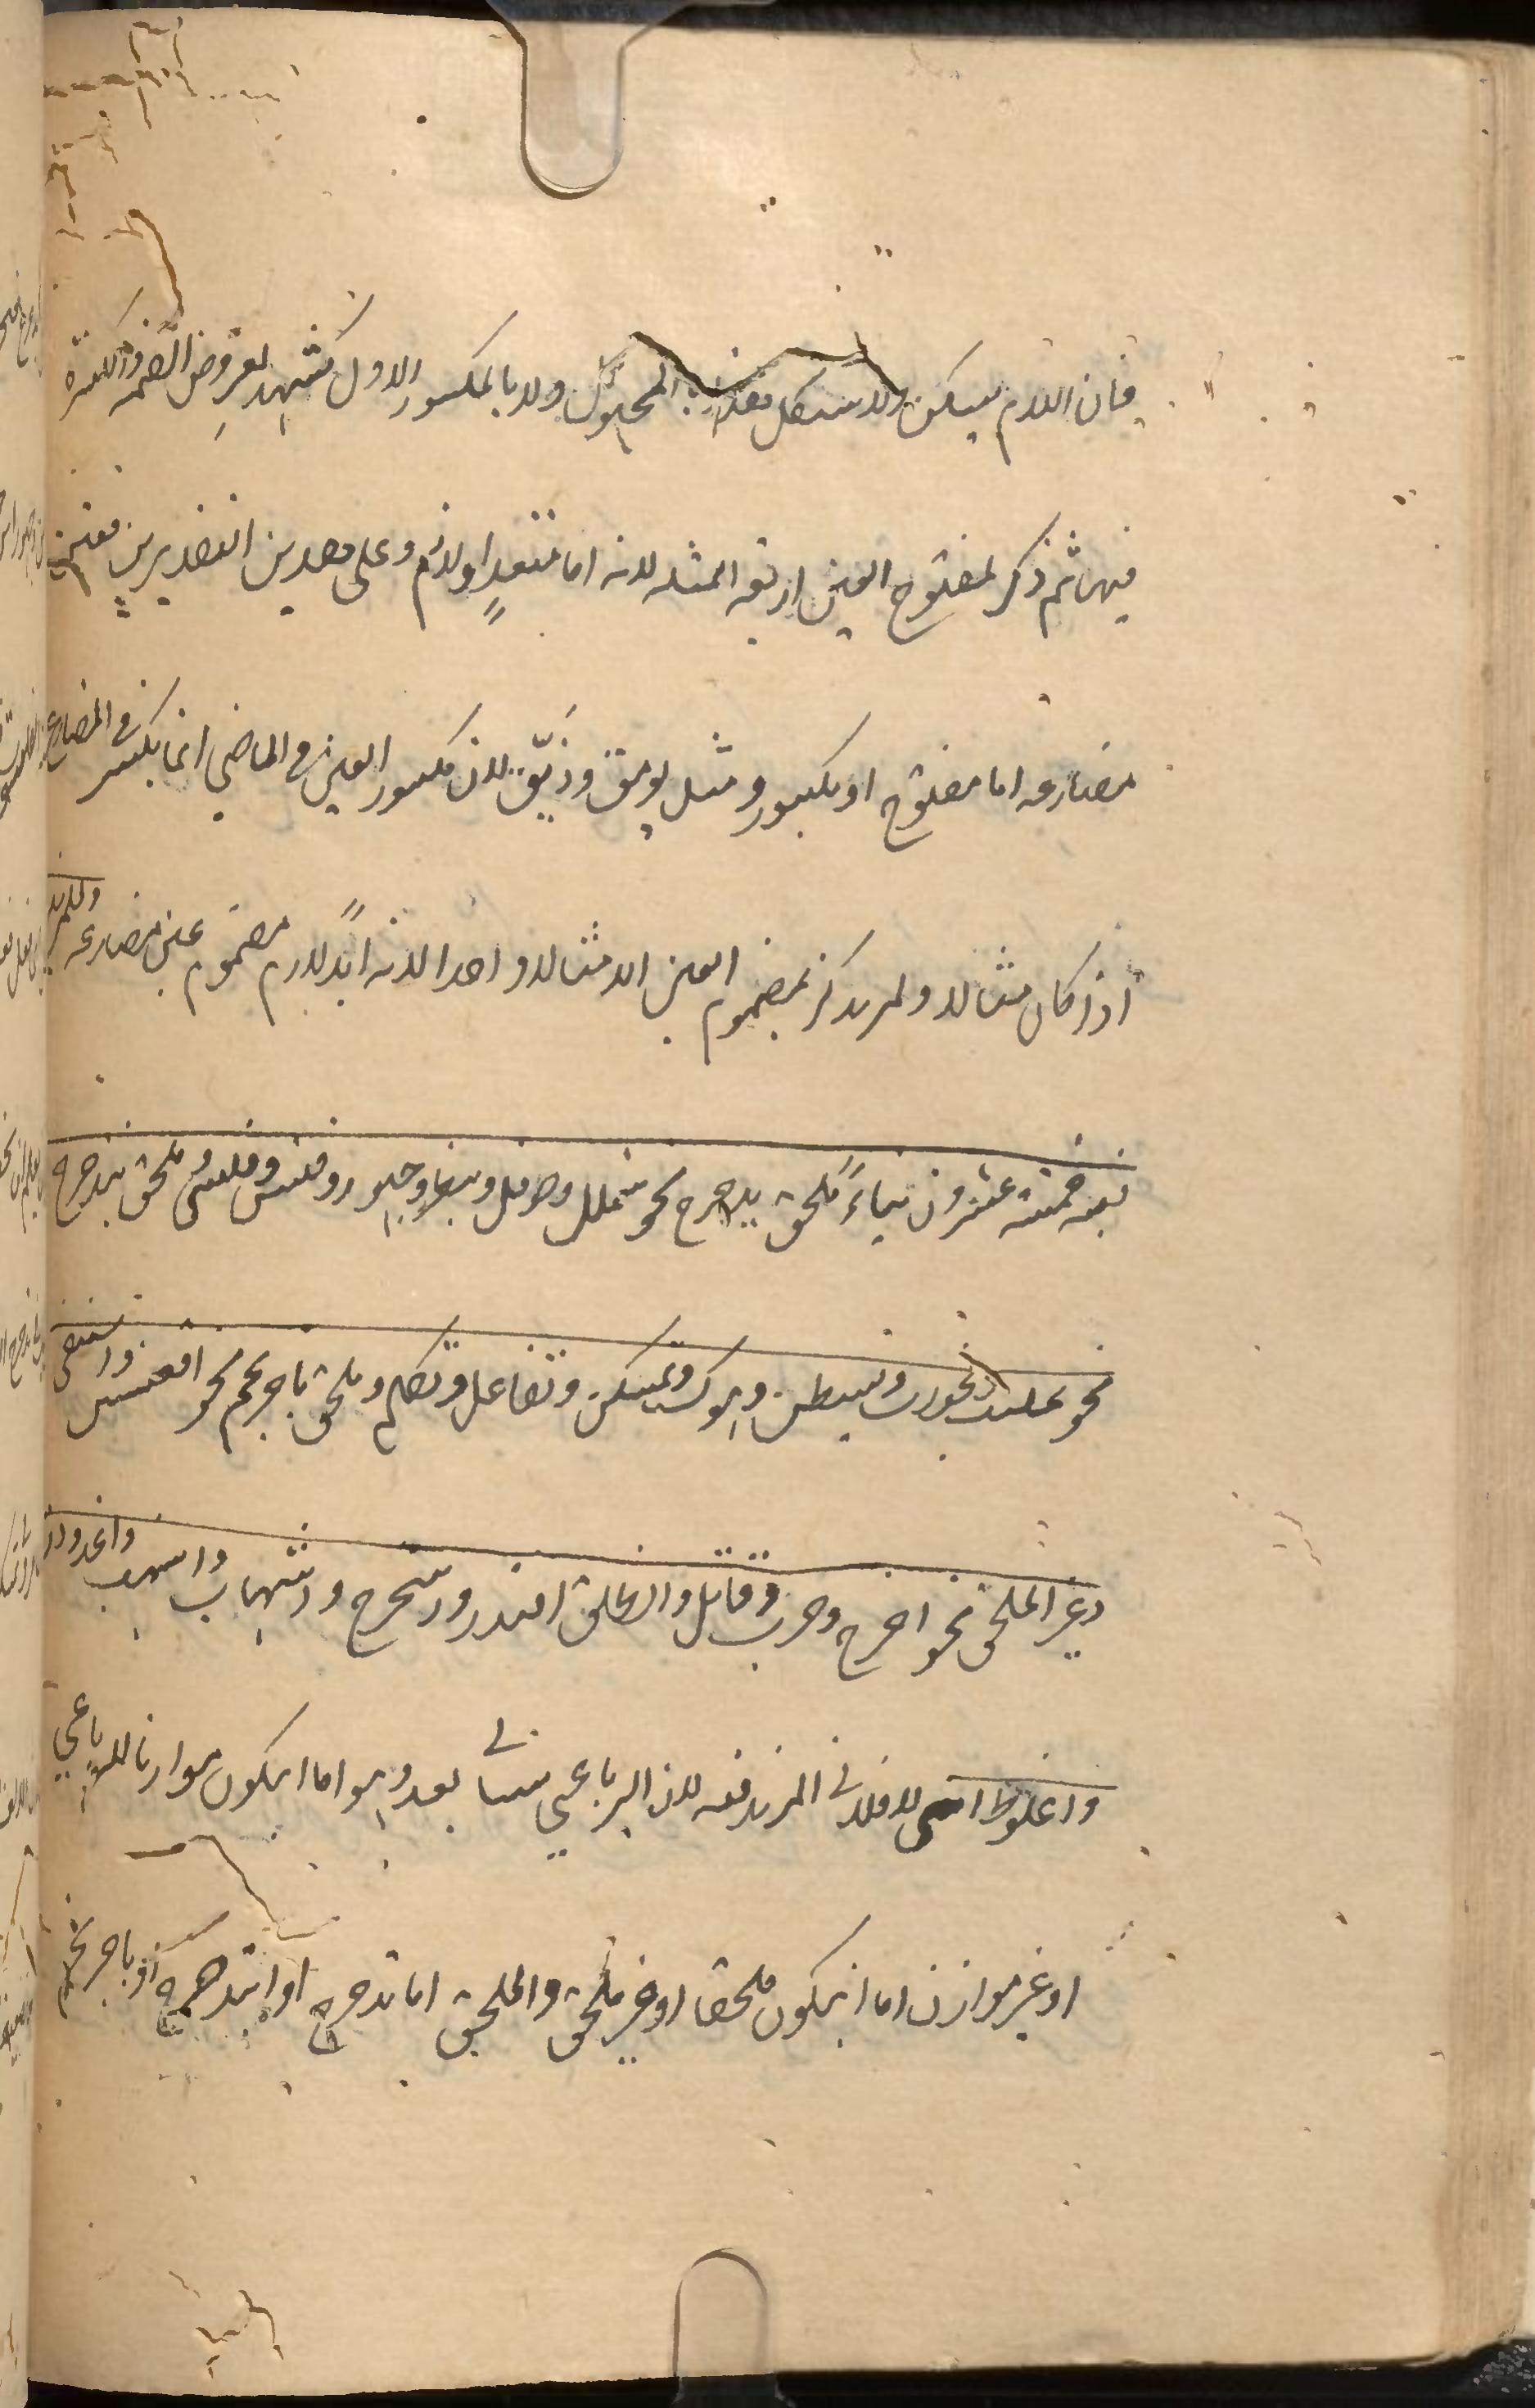 فان اللام يسكن ولا يشكل بالمجهول ولا بالمكسور الاول كشهد لعروض الضمه والكسرة
فيهما ثم ذكر لمفتوح العين اربعه امثله لانه اما متعدٍ او لازم وعلى هذين التقديرين فعين
مضارعه اما مفتوح او مكسور ومثل يومق لان مكسور العين في الماضي انما يكسر في المضارع
اذا كان مثالا ولم يذكر لمضموم العين الا مثالا واحدا لانه ابدا لازم مضموم عين مضارعه وللمزيد
فيه خمسة عشرون بناءً ملحق بدحرج نحو شملل وحوقل وبيطر وجهور وقلنس وقلسى وملحق بتدحرج
نحو تجلبب وتجورب وتشيطن وترهوك وتمسكن وتغافل وتكلم وملحق باحرنجم نحو اقعنسس واسلنقى
وغير الملحق نحو اخرج وجرب وقاتل وانطلق اقتدر واستخرج واشهاب واشهب واغدودن
واعلوط المزيد فيه لان الرباعي سيأتي بعد وهو اما ان يكون موازنا للرباعي
او غير موازن اما ان يكون ملحقا او غير ملحق والملحق اما بدحرج او بتدحرج او باحرنجم